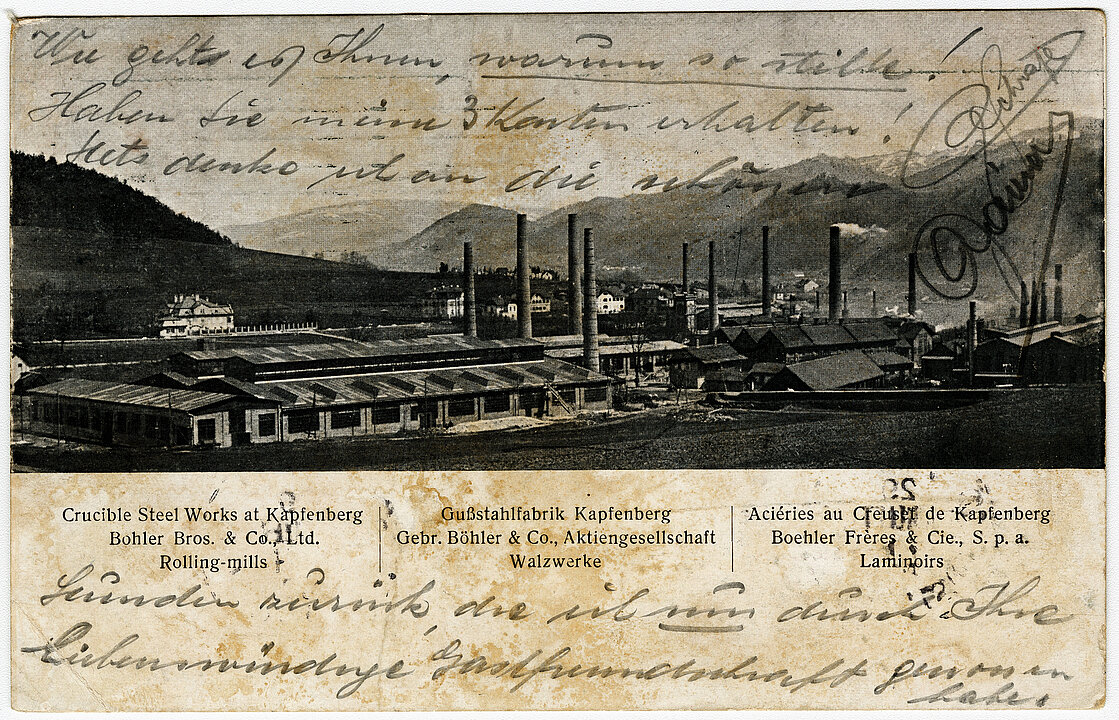 Wie gehts es Ihnen, warum so stille!
Haben Sie meine 3 Karten erhalten!
Stets denke ich an die schönen
Crucible Steel Works at Kapfenberg
Bohler Bros. & Co., Ltd.
Rolling-mills
Gußstahlfabrik Kapfenberg
Gebr. Böhler & Co., Aktiengesellschaft
Walzwerke
Aciéries au Creuset de Kapfenberg
Boehler Frères & Cie., S. p. a.
Laminoirs
Stunden zurück, die ich nur durch Ihre
Liebenswürdige Gastfreundschaft genossen
habe.